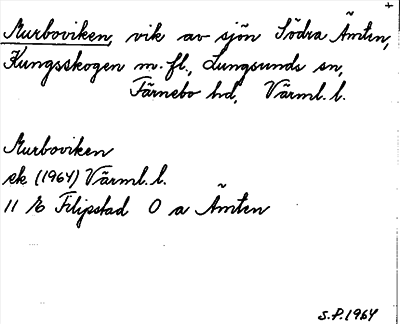 +
Murboviken, vik av sjön Södra Ämten,
Kungsskogen m.fl., Lungsunds sn,
Färnebo hd, Värml. l.
Murboviken
ek (1964) Värml. l.
11 E Filipstad 0 a Ämten
S.P. 1964